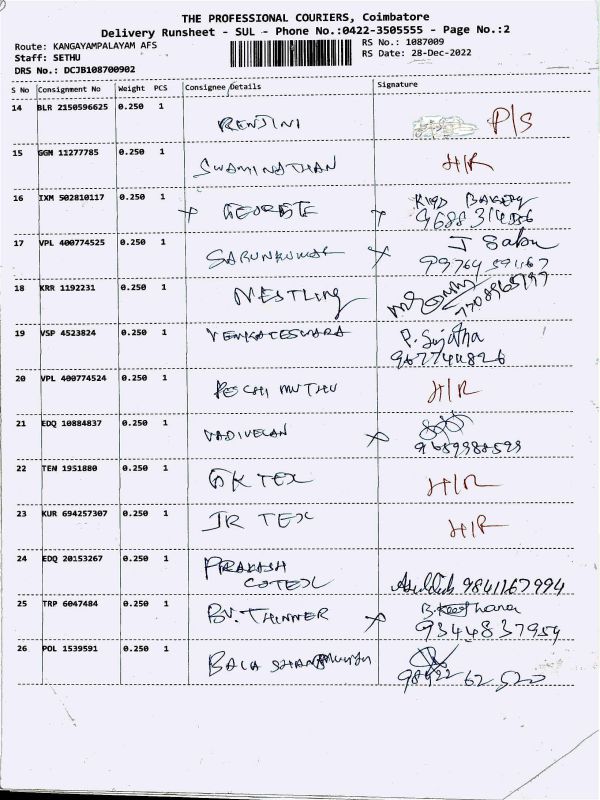 THE PROFESSIONAL COURIERS, Coimbatore
Delivery Runsheet - SUL - Phone No.:0422-3505555 - Page No.:2
Route: KANGAYAMPALAYAM AFS
RS No.: 1087009
Staff: SETHU
RS Date: 28-Dec-2022
DRS No.: DCJB108700902
S No Consignment No Weight PCS Consignee Details Signature
14 BLR 2150596625 0.250 1 RENJINI P/S
15 GGN 11277785 0.250 1 SWAMINATHAN H/R
16 IXM 502810117 0.250 1 BAKERY
17 VPL 400774525 0.250 1 J Sabu
18 KRR 1192231 0.250 1 NESTLING
19 VSP 4523824 0.250 1 VENKATESWARA P. Sujatha
20 VPL 400774524 0.250 1 PECHI MUTHU H/R
21 EDQ 10884837 0.250 1 VADIVELAN
22 TEN 1951880 0.250 1 GK TEX H/R
23 KUR 694257307 0.250 1 JR TEX H/R
24 EDQ 20153267 0.250 1 PRAKASH
COTEX 9841167994
25 TRP 6047484 0.250 1 BV. THINNER B. Keerthana
9344837954
26 POL 1539591 0.250 1 BALA
98422 62 520